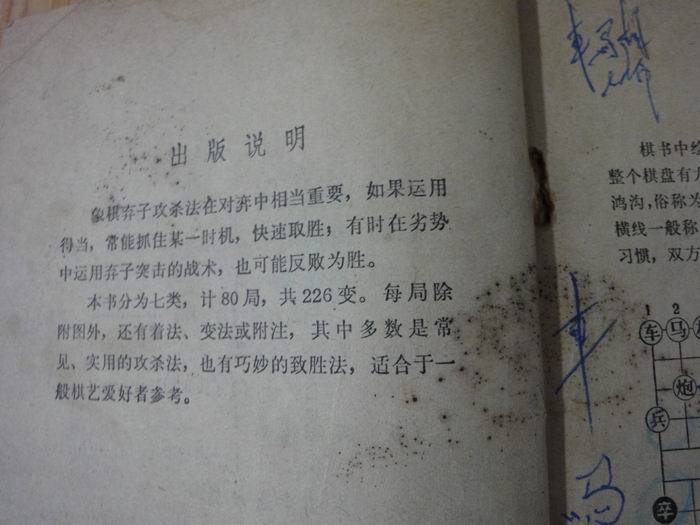 出版说明
象棋弃子攻杀法在对弈中相当重要，如果运用
得当，常能抓住某一时机，快速取胜；有时在劣势
中运用弃子突击的战术，也可能反败为胜。
本书分为七类，计80局，共226变。每局除
附图外，还有着法、变法或附注，其中多数是常
见、实用的攻杀法，也有巧妙的致胜法，适合于一
般棋艺爱好者参考。
棋书中
整个棋盘有
鸿沟，俗称为
横线一般称
习惯，双方
1 2
车 马
炮
兵
卒